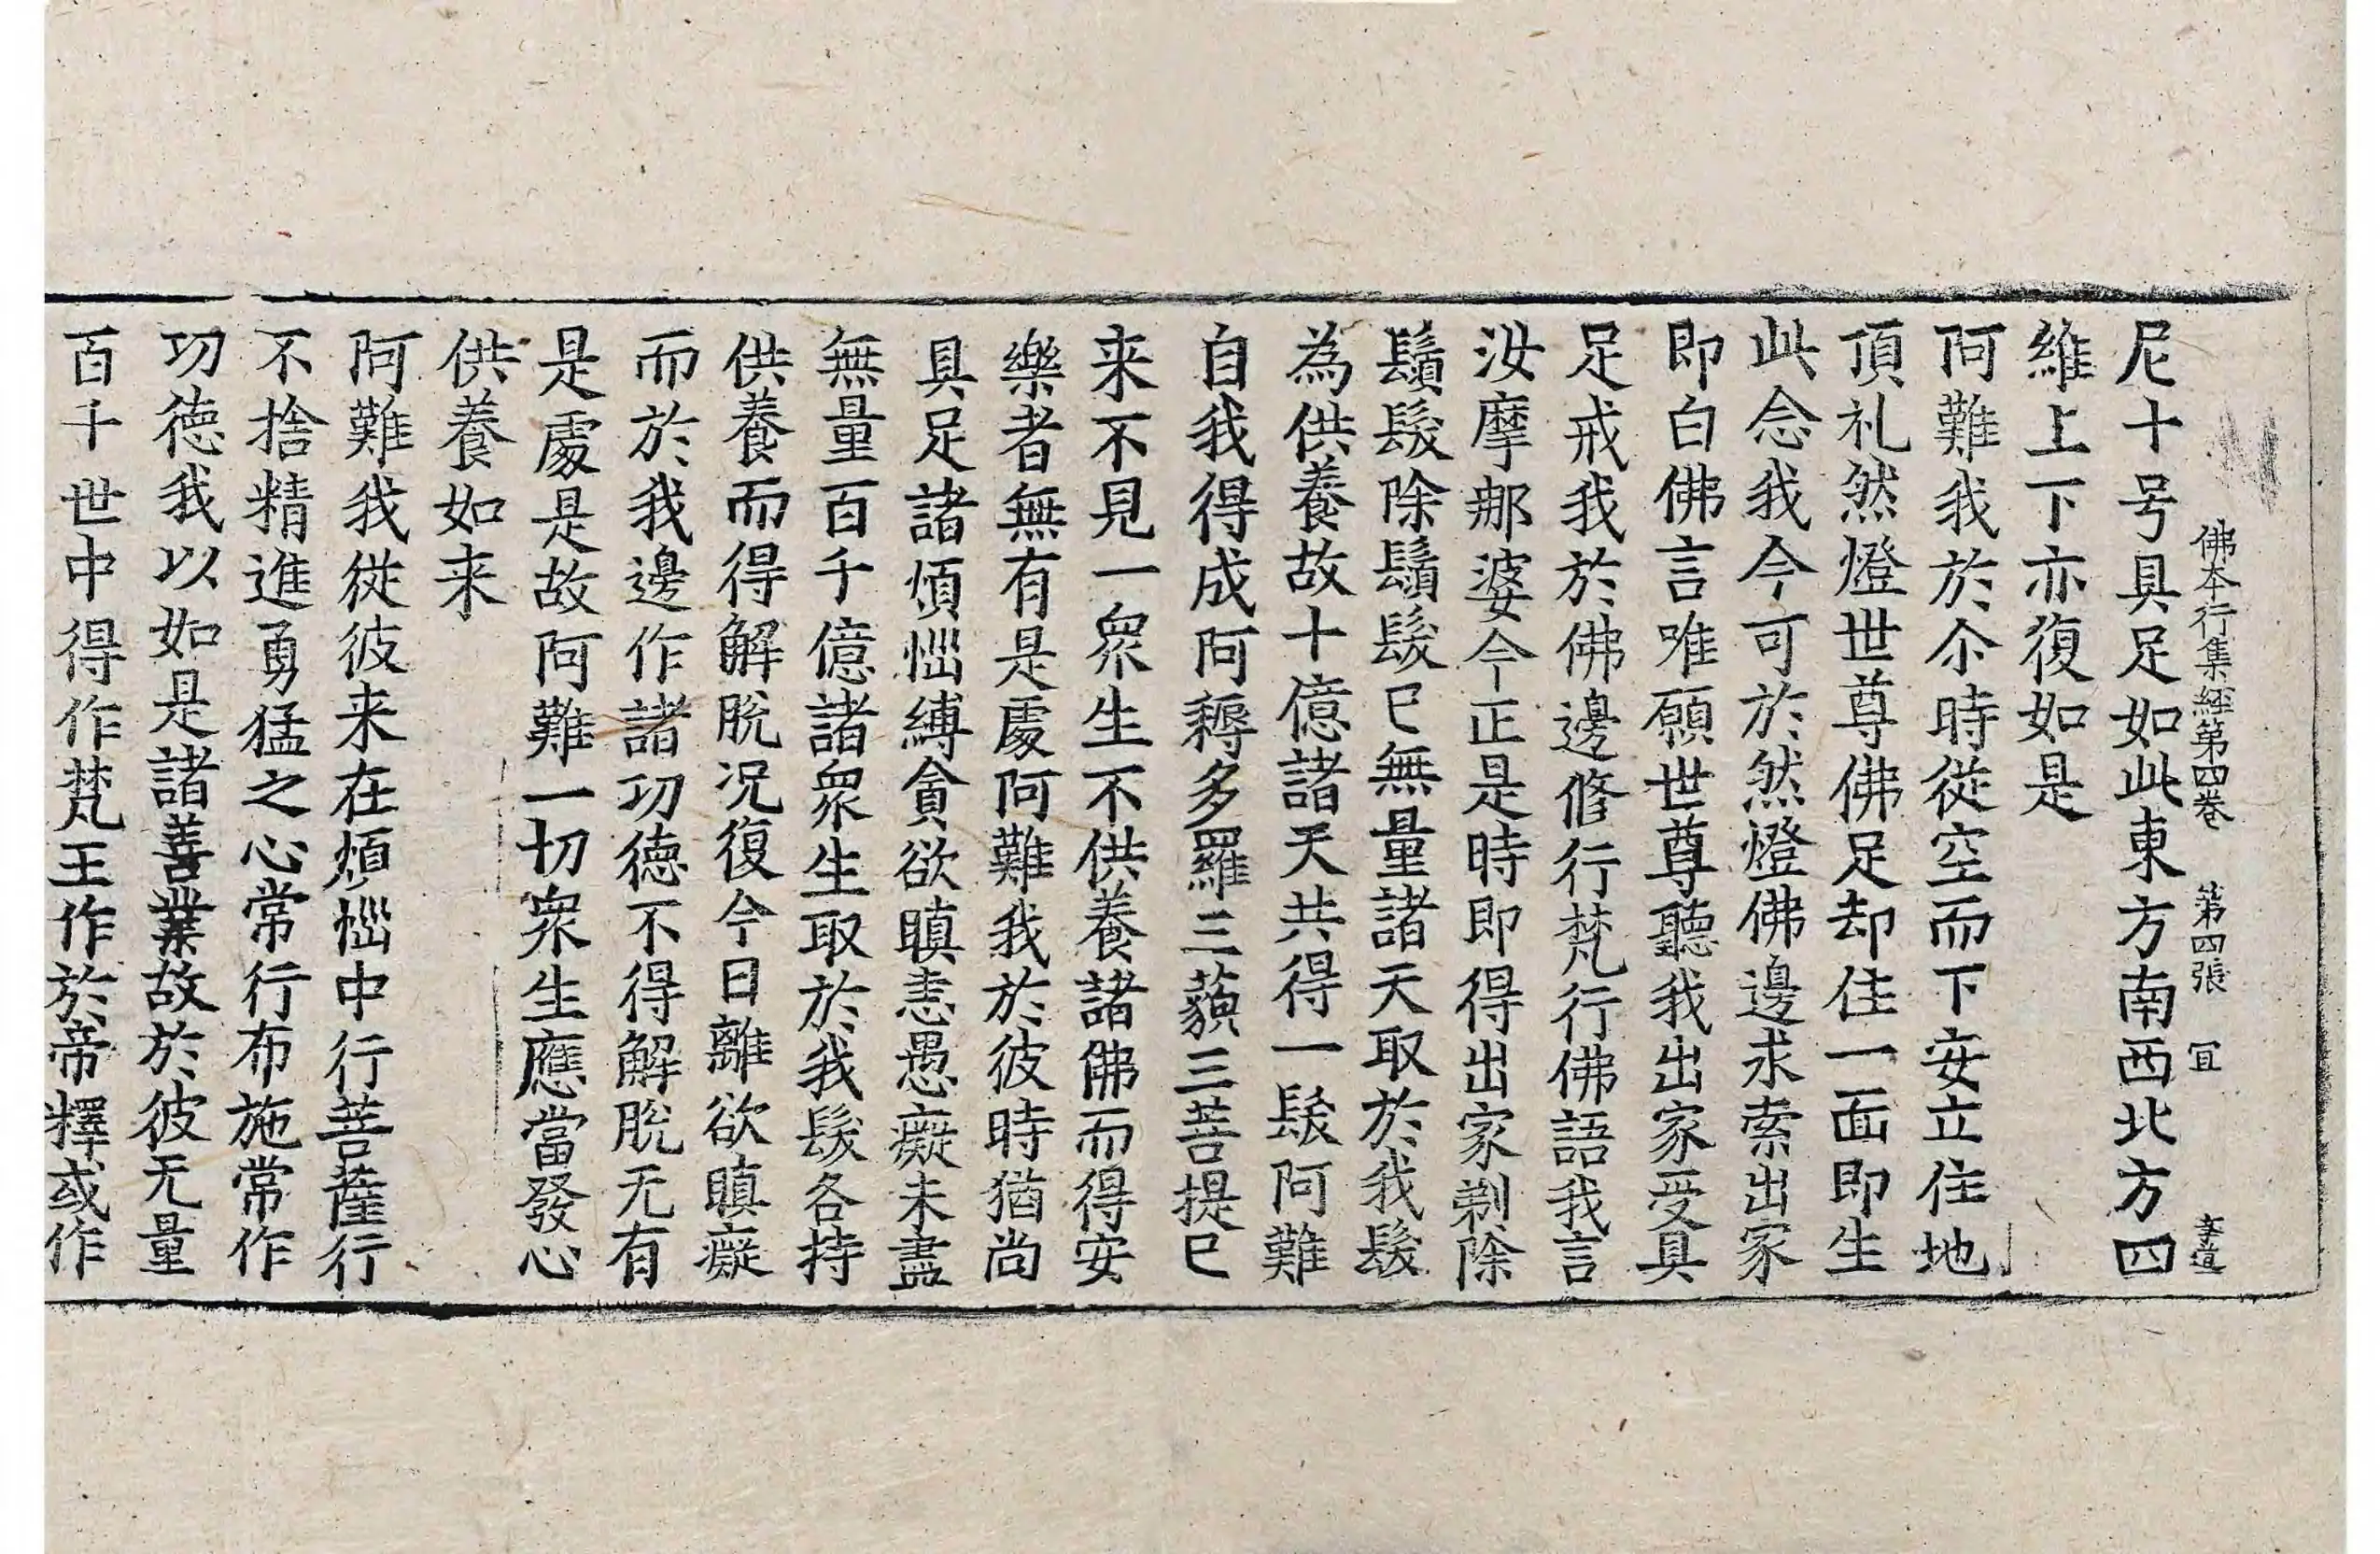 佛本行集經第四卷 第四張 冝 李道
尼十号具足如此東方南西北方四
維上下亦復如是
阿難我於尒時從空而下安立住地
頂礼然燈世尊佛足却住一面即生
此念我今可於然燈佛邊求索出家
即白佛言唯願世尊聽我出家受具
足戒我於佛邊脩行梵行佛語我言
汝摩那婆今正是時即得出家剃除
鬚髮除鬚髮已無量諸天取於我髮
為供養故十億諸天共得一髮阿難
自我得成阿耨多羅三藐三菩提已
来不見一眾生不供養諸佛而得安
樂者無有是處阿難我於彼時猶尚
具足諸煩惱縛貪欲瞋恚愚癡未盡
無量百千億諸眾生取於我髮各持
供養而得解脫况復今日離欲瞋癡
而於我邊作諸功德不得解脫无有
是處是故阿難一切眾生應當發心
供養如来
阿難我從彼来在煩惱中行菩薩行
不捨精進勇猛之心常行布施常作
功德我以如是諸善業故於彼无量
百千世中得作梵王作於帝釋或作